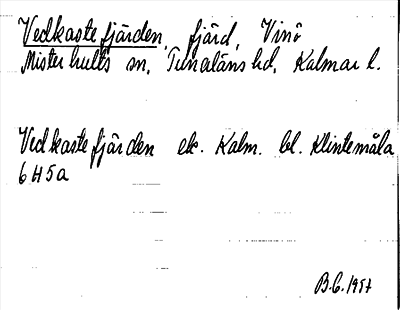 Vedkastefjärden, fjärd, Vinö
Misterhults sn, Tunaläns hd, Kalmar l.
Vedkastefjärden ek. Kalm. bl. Klintemåla
6H5a
B.C. 1957